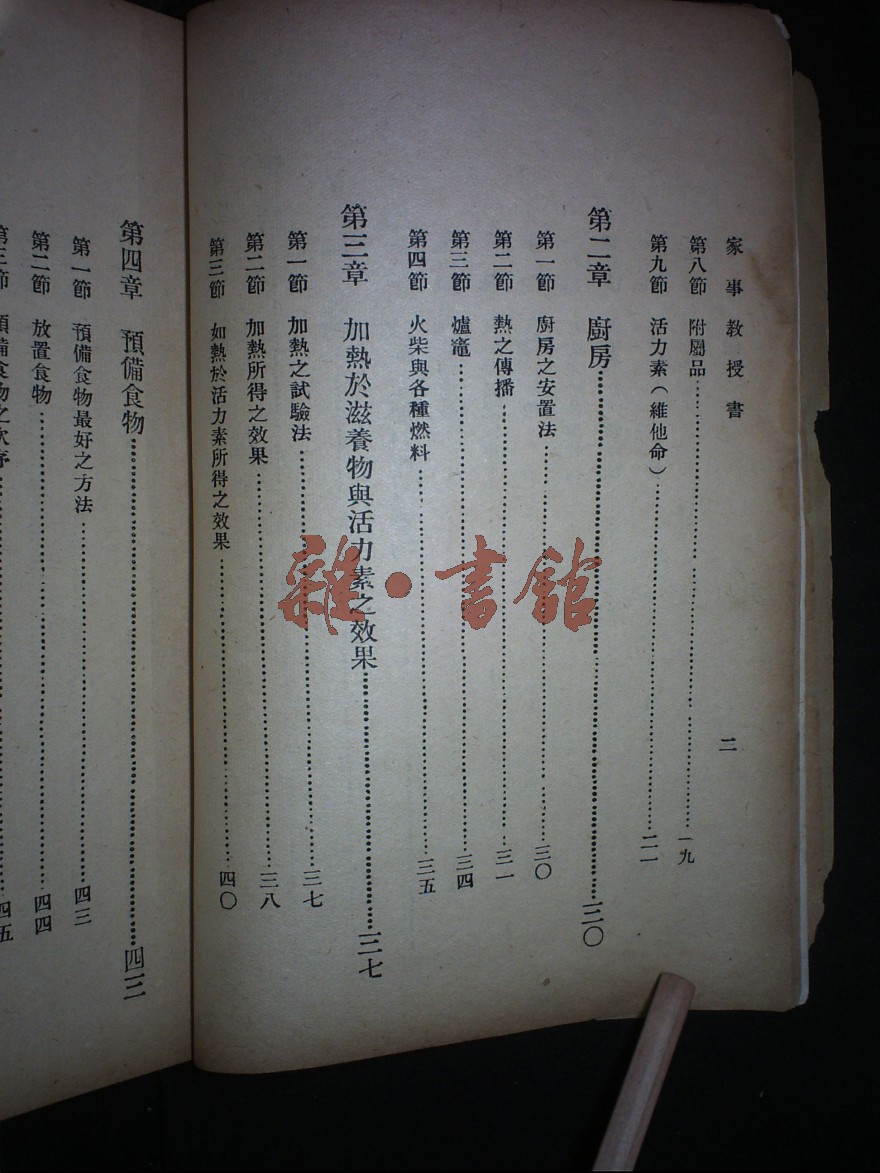 家事教授書
二
第八節 附屬品……一九
第九節 活力素（維他命）……二一
第二章 廚房……三〇
第一節 廚房之安置法……三〇
第二節 熱之傳播……三一
第三節 爐竈……三四
第四節 火柴與各種燃料……三五
第三章 加熱於滋養物與活力素之效果……三七
第一節 加熱之試驗法……三七
第二節 加熱所得之效果……三八
第三節 如熱於活力素所得之效果……四〇
第四章 預備食物……四三
第一節 預備食物最好之方法……四三
第二節 放置食物……四四
第三節 預備食物之次序……四五
雜·書館